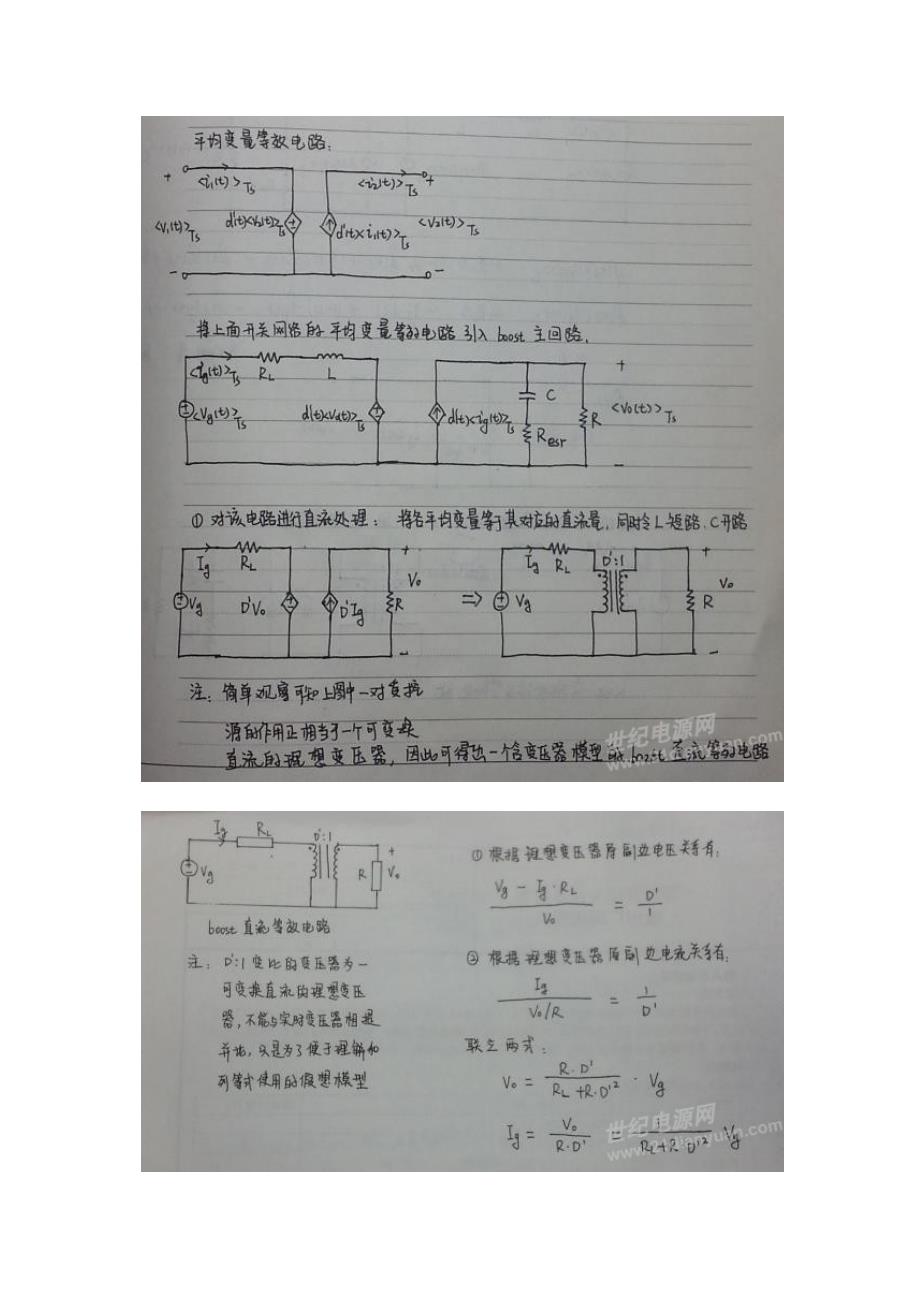 平均变量等效电路:
+ <i₁(t)>Ts <i₂(t)>Ts +
<v₁(t)>Ts d'(t)<v₂(t)>Ts d'(t)<i₁(t)>Ts <v₂(t)>Ts
- -
将上面开关网络的平均变量等效电路引入 boost 主回路,
<ig(t)>Ts RL L +
<Vg(t)>Ts d'(t)<Vo(t)>Ts d'(t)<ig(t)>Ts C Resr R <Vo(t)>Ts
-
① 对该电路进行直流处理: 将各平均变量等于其对应的直流量, 同时令L短路、C开路
Ig RL + Ig RL D':1 +
Vg D'Vo D'Ig R Vo ⇒ Vg R Vo
- -
注: 简单观察可知上图中一对受控
源的作用正相当于一个可变换
直流的理想变压器, 因此可得出一个含变压器模型的 boost 直流等效电路
世纪电源网
Ig RL D':1 +
Vg R Vo
-
boost 直流等效电路
注: D':1 变比的变压器为一
可变换直流的理想变压
器, 不能与实际变压器相提
并论, 只是为了便于理解和
列等式使用的假想模型
① 根据理想变压器原副边电压关系有:
(Vg - Ig·RL) / Vo = D' / 1
② 根据理想变压器原副边电流关系有:
Ig / (Vo/R) = 1 / D'
联立两式:
Vo = R·D' / (RL+R·D'²) · Vg
Ig = Vo / (R·D') = 1 / (RL+R·D'²) Vg
世纪电源网